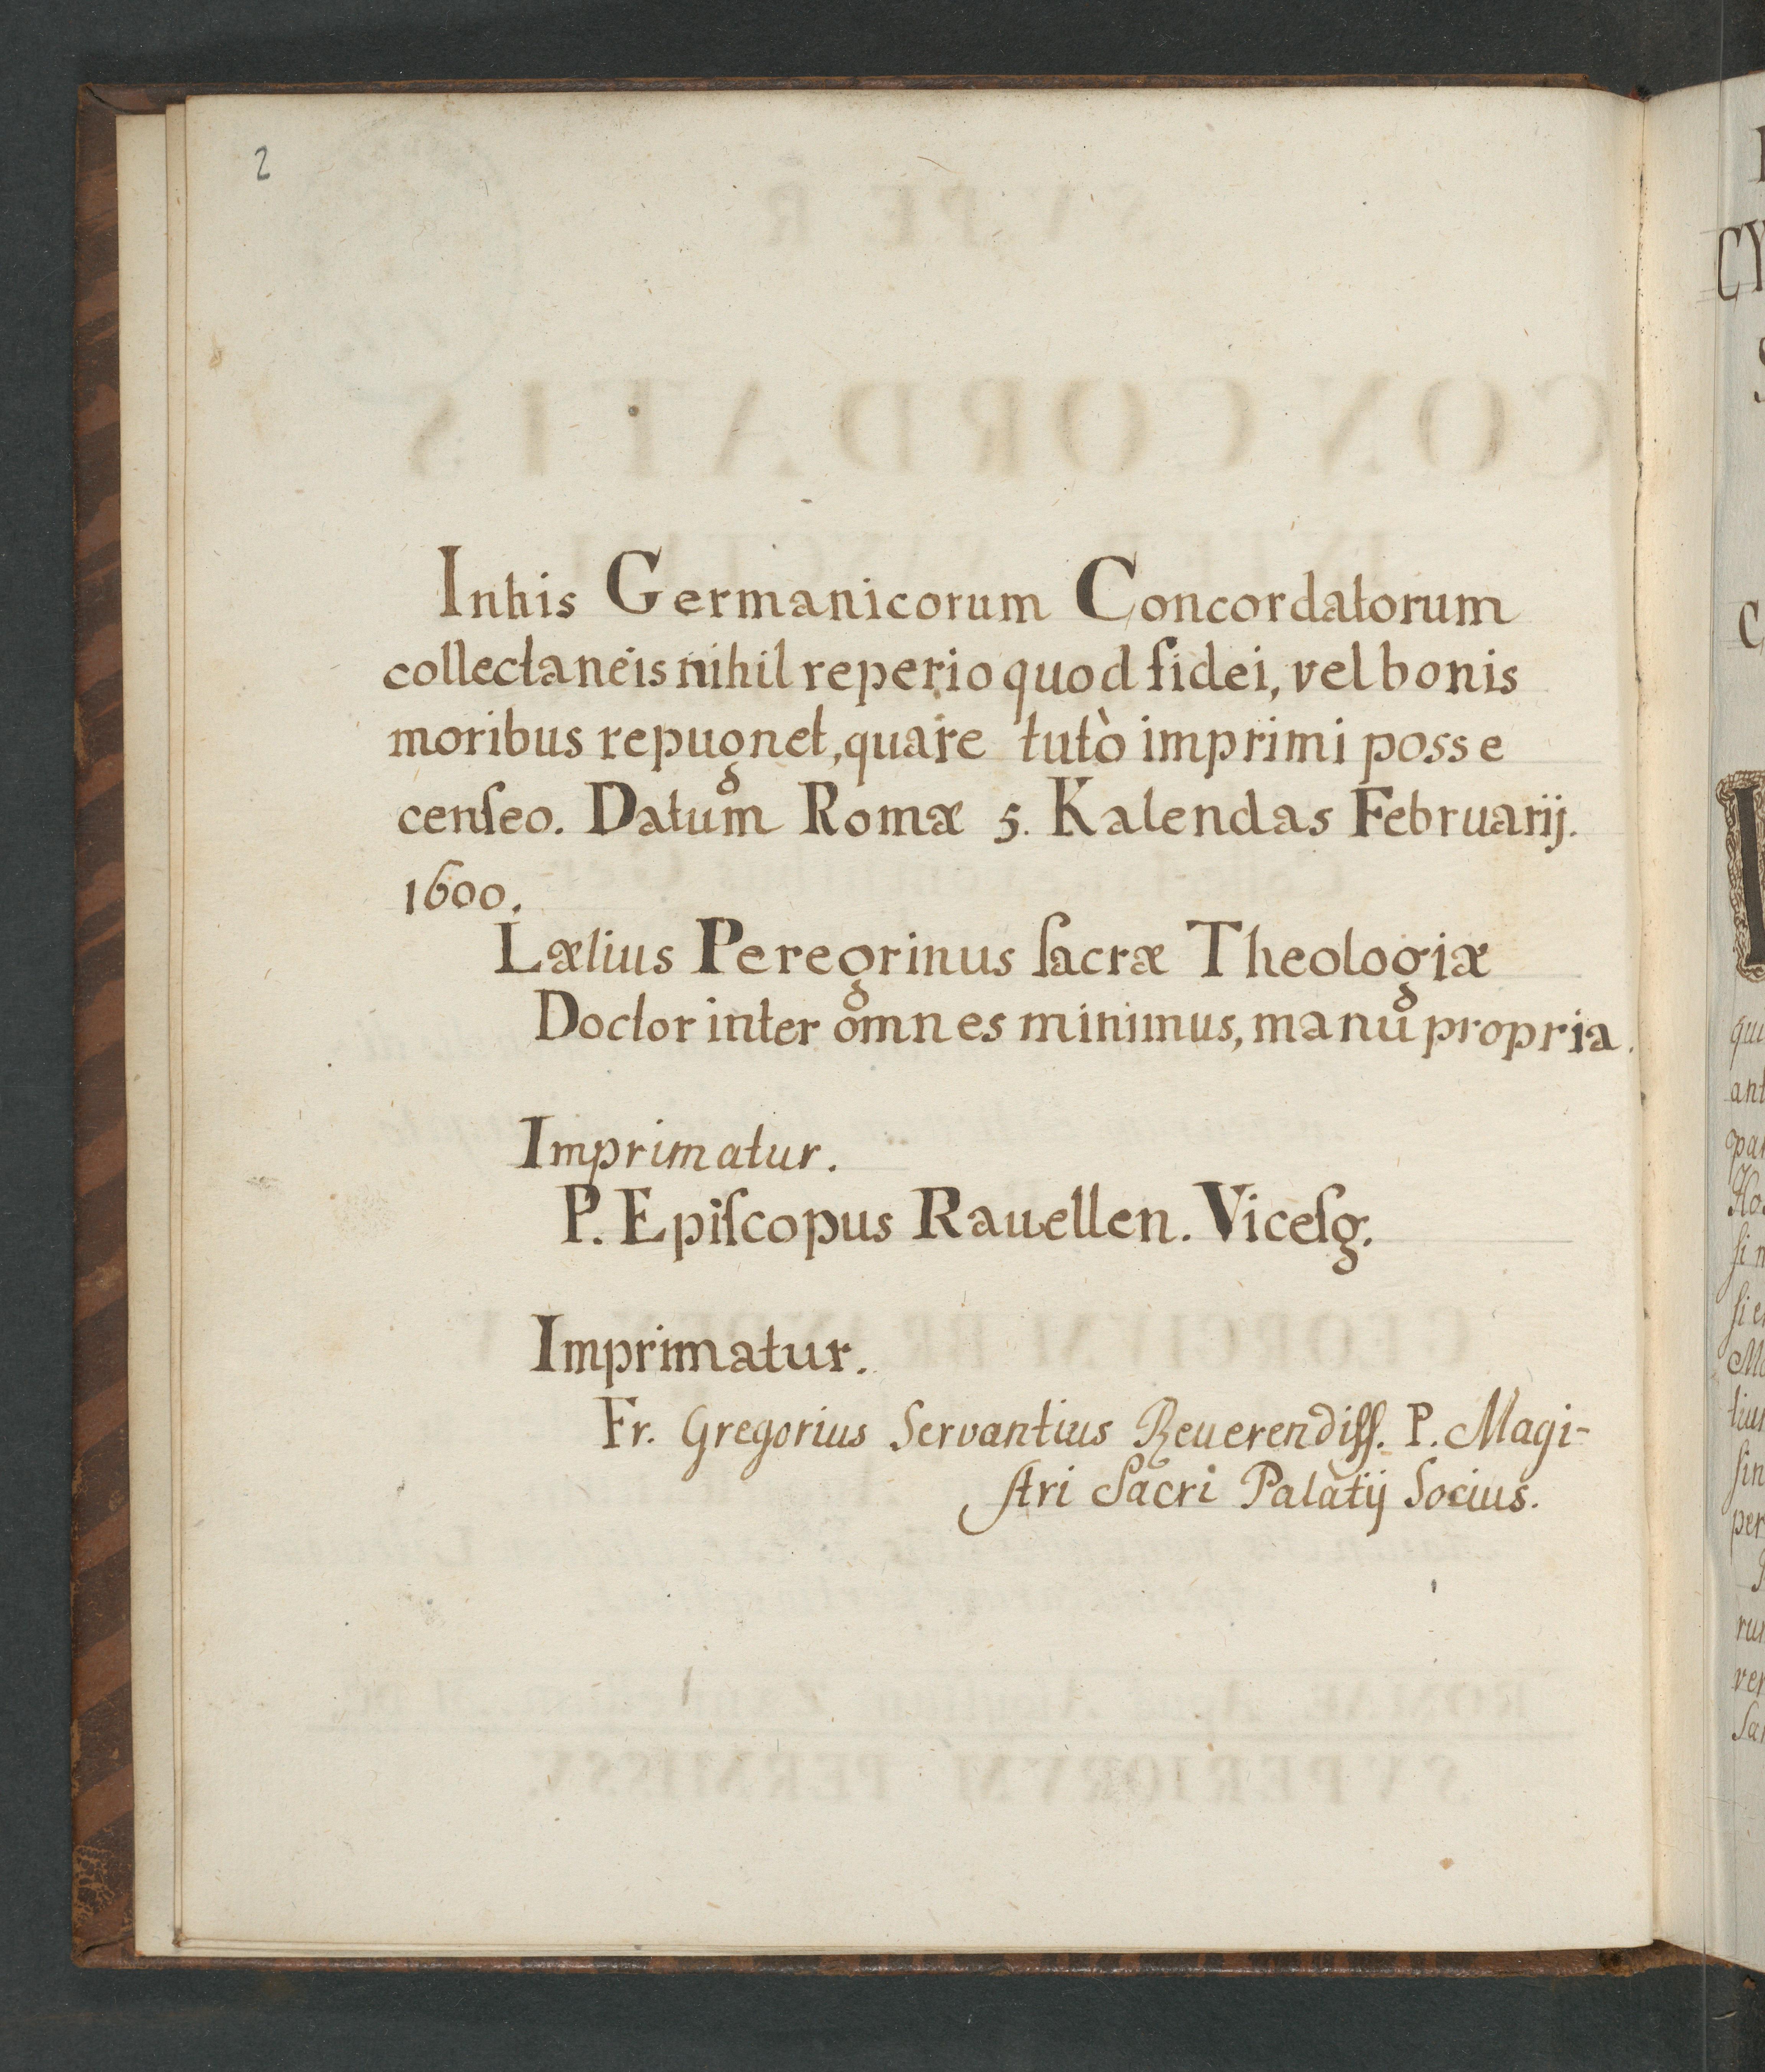 2
Inhis Germanicorum Concordatorum
collectaneis nihil reperio quod fidei, vel bonis
moribus repugnet, quare tutò imprimi posse
cenſeo. Datum Romæ 5. Kalendas Februarij.
1600.
Lælius Peregrinus ſacræ Theologiæ
Doctor inter omnes minimus, manu propria.
Imprimatur.
P. Epiſcopus Rauellen. Viceſg.
Imprimatur.
Fr. Gregorius Servantius Reuerendiſſ. P. Magi-
ſtri Sacri Palatij Socius.